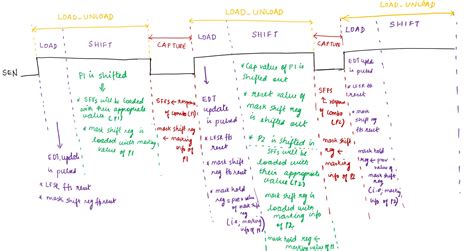 LOAD_UNLOAD
LOAD_UNLOAD
LOAD_UNLOAD
LOAD
SHIFT
CAPTURE
LOAD
SHIFT
CAPTURE
LOAD
SHIFT
SEN
P1 is shifted
* SFFs will be loaded
with their appropriate
value (P1)
* mask shift reg
is loaded with masking
value of P1
EDT update
is pulsed
* LFSR ffs reset
* mask shift reg ffs reset
SFFs ← response
of combo (P1)
mask shift
reg ←
masking
info of P1
EDT
update
is pulsed
* LFSR ffs
reset
* mask shift
reg ffs
reset
* mask hold
reg ← prev value of
mask shift
reg
(i.e, masking
info of P1)
* Cap value of P1 is
shifted out
* reset value of
mask shift reg
is shifted out
* P2 is shifted in
SFFs will be
loaded with
their appropriate
value (P2)
mask shift reg is
loaded with
masking info of
P2
mask hold reg ←
masking info of P1
SFFs
← response
of combo
(P2)
mask shift
reg ←
masking
info of P2
EDT update
is pulsed
* LFSR ffs
reset
* mask shift
reg ffs
reset
* mask hold
reg ← prev
value of
mask shift
reg
(i.e, masking
info of P2)